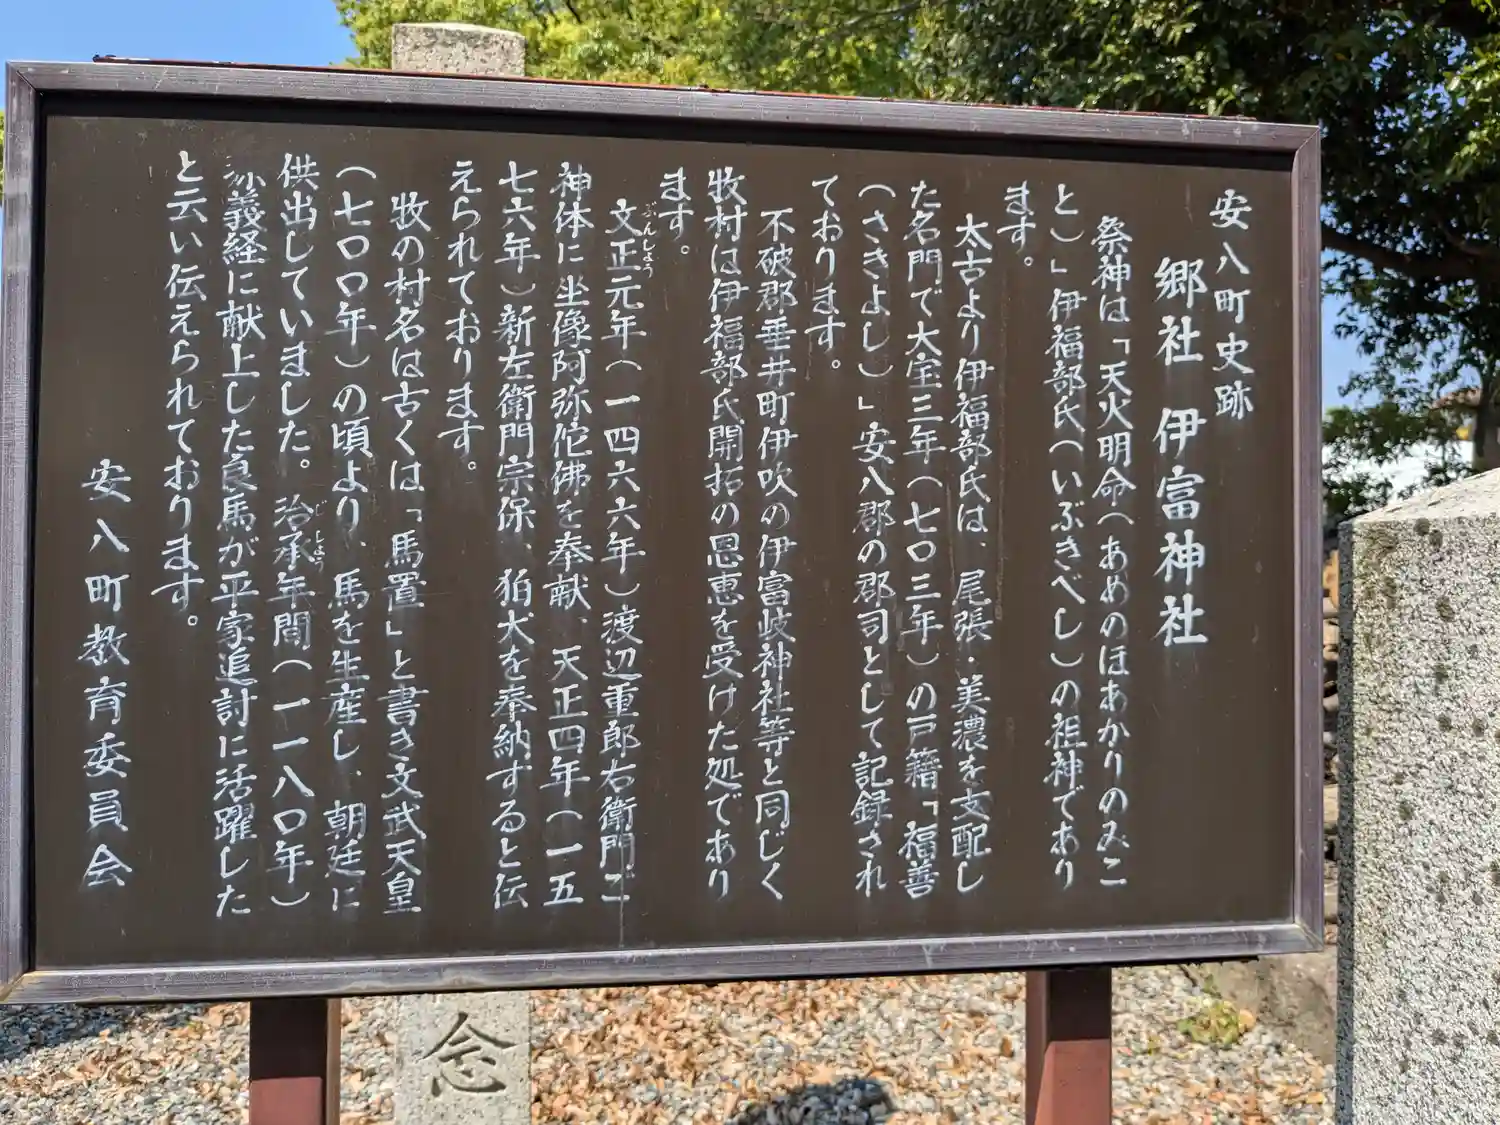 安八町史跡
郷社 伊富神社
祭神は「天火明命(あめのほあかりのみこ
と)」伊福部氏(いぶきべし)の祖神であり
ます。
太古より伊福部氏は、尾張・美濃を支配し
た名門で大宝三年(七〇三年)の戸籍「福善
(さきよし)」安八郡の郡司として記録され
ております。
不破郡垂井町伊吹の伊富岐神社等と同じく
牧村は伊福部氏開拓の恩恵を受けた処であり
ます。
文正元年(一四六六年)渡辺重郎右衛門ご
ぶんしょう
神体に坐像阿弥陀佛を奉献、天正四年(一五
七六年)新左衛門宗保、狛犬を奉納すると伝
えられております。
牧の村名は古くは「馬置」と書き文武天皇
(七〇〇年)の頃より、馬を生産し、朝廷に
供出していました。治承年間(一一八〇年)
じしょう
義経に献上した良馬が平家追討に活躍した
と云い伝えられております。
安八町教育委員会
念